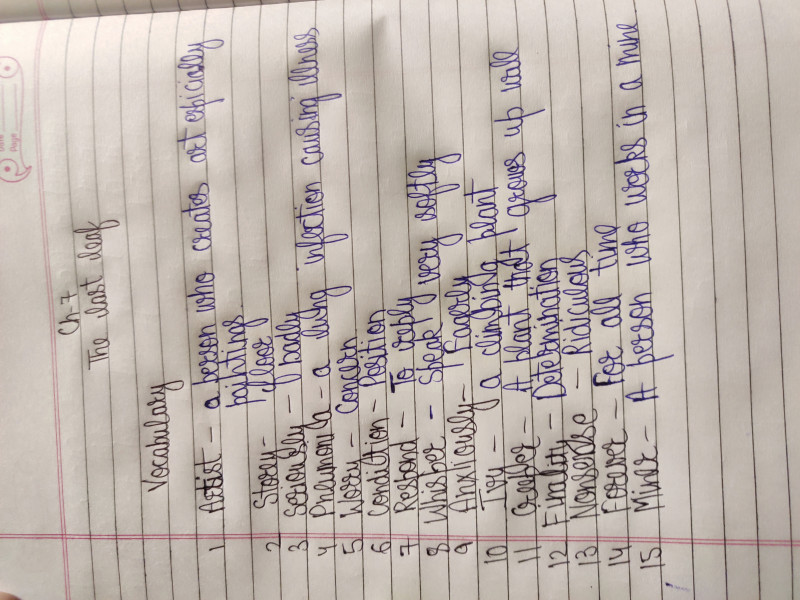 Ch-7
The Last Leaf
Vocabulary
1 Artist - a person who creates art especially
paintings
2 Story - floor
3 Seriously - badly
4 Pneumonia - a lung infection causing illness
5 Worry - concern
6 Condition - Position
7 Respond - To reply
8 Whisper - Speak very softly
9 Anxiously - Eagerly
10 Ivy - a climbing plant
11 Creeper - A plant that grows up wall
12 Finality - Determination
13 Nonsense - Ridiculous
14 Forever - For all time
15 Miner - A person who works in a mine